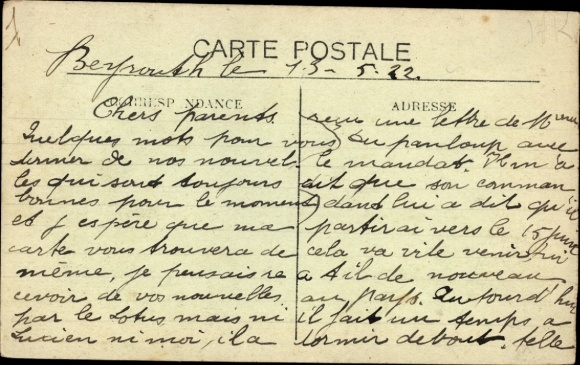 1
CARTE POSTALE
Beyrouth le 13-5-22.
CORRESPONDANCE
Chers parents
Quelques mots pour vous
dormer de nos nouvel-
les qui sont toujours
bonnes pour le moment
et j espère que ma
carte vous trouvera de
même, je pensais re
cevoir de vos nouvelles
par le Lotus mais ni
Lucien ni moi, il a
ADRESSE
reçu une lettre de
Du panloup avec
le mandat
dit que soi comman
dant lui a dit qu'il
partirai vers le 15 juin
cela va vite venir
a t il de nouveau
au pays. Aujourd'hui
il fait un temps a
dormir debout. telle